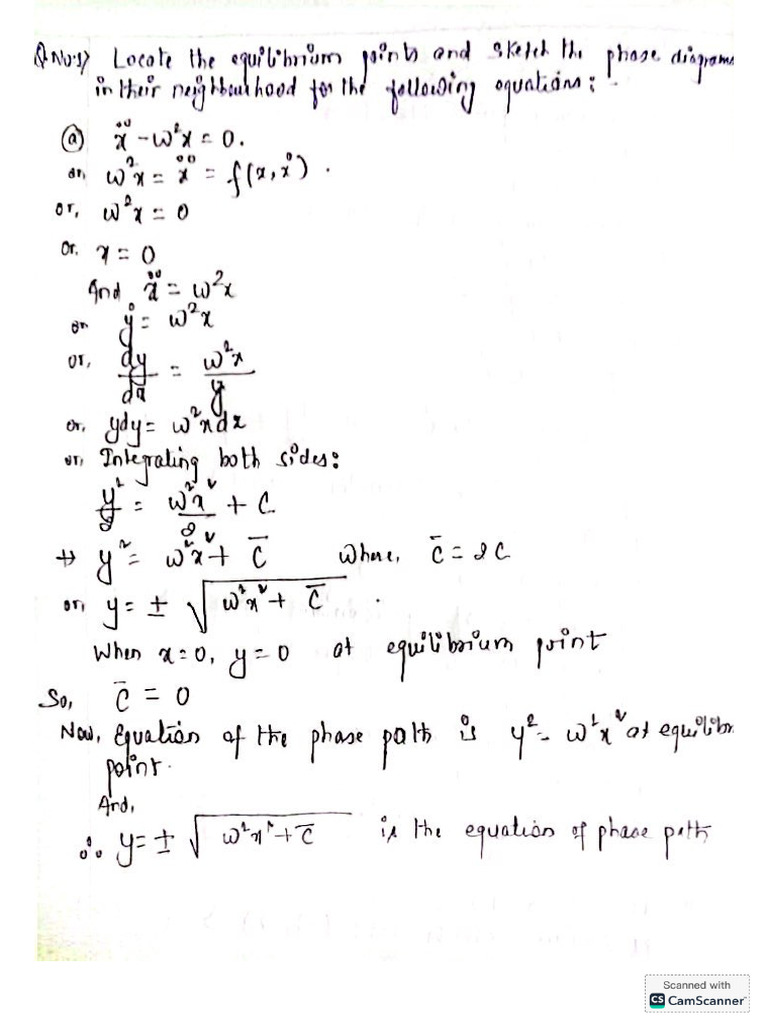 Q.No:1> Locate the equilibrium points and sketch the phase diagrams
in their neighbourhood for the following equations:-
(a) ẍ - ω²x = 0.
or, ω²x = ẍ = f(x, ẋ).
or, ω²x = 0
or, x = 0
And ẍ = ω²x
or ẏ = ω²x
or, dy/dx = ω²x/y
or, ydy = ω²xdx
or, Integrating both sides:
y²/2 = ω²x²/2 + C
→ y² = ω²x² + C̄ where, C̄ = 2C
or, y = ± √(ω²x² + C̄).
When x=0, y=0 at equilibrium point
So, C̄ = 0
Now, Equation of the phase path is y² = ω²x² at equilibr
point.
And,
∴ y = ± √(ω²x² + C̄) is the equation of phase path
Scanned with
CS CamScanner